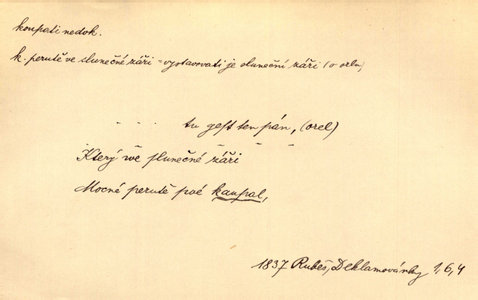 koupati nedok.
k. perutě ve slunečné záři = vystavovati je sluneční záři (o orlu)
. . . tu gest ten pán, (orel)
Který wé slunečné záři
Mocné perutě swé kaupal,
1837 Rubeš, Deklamovánky 1,6,4